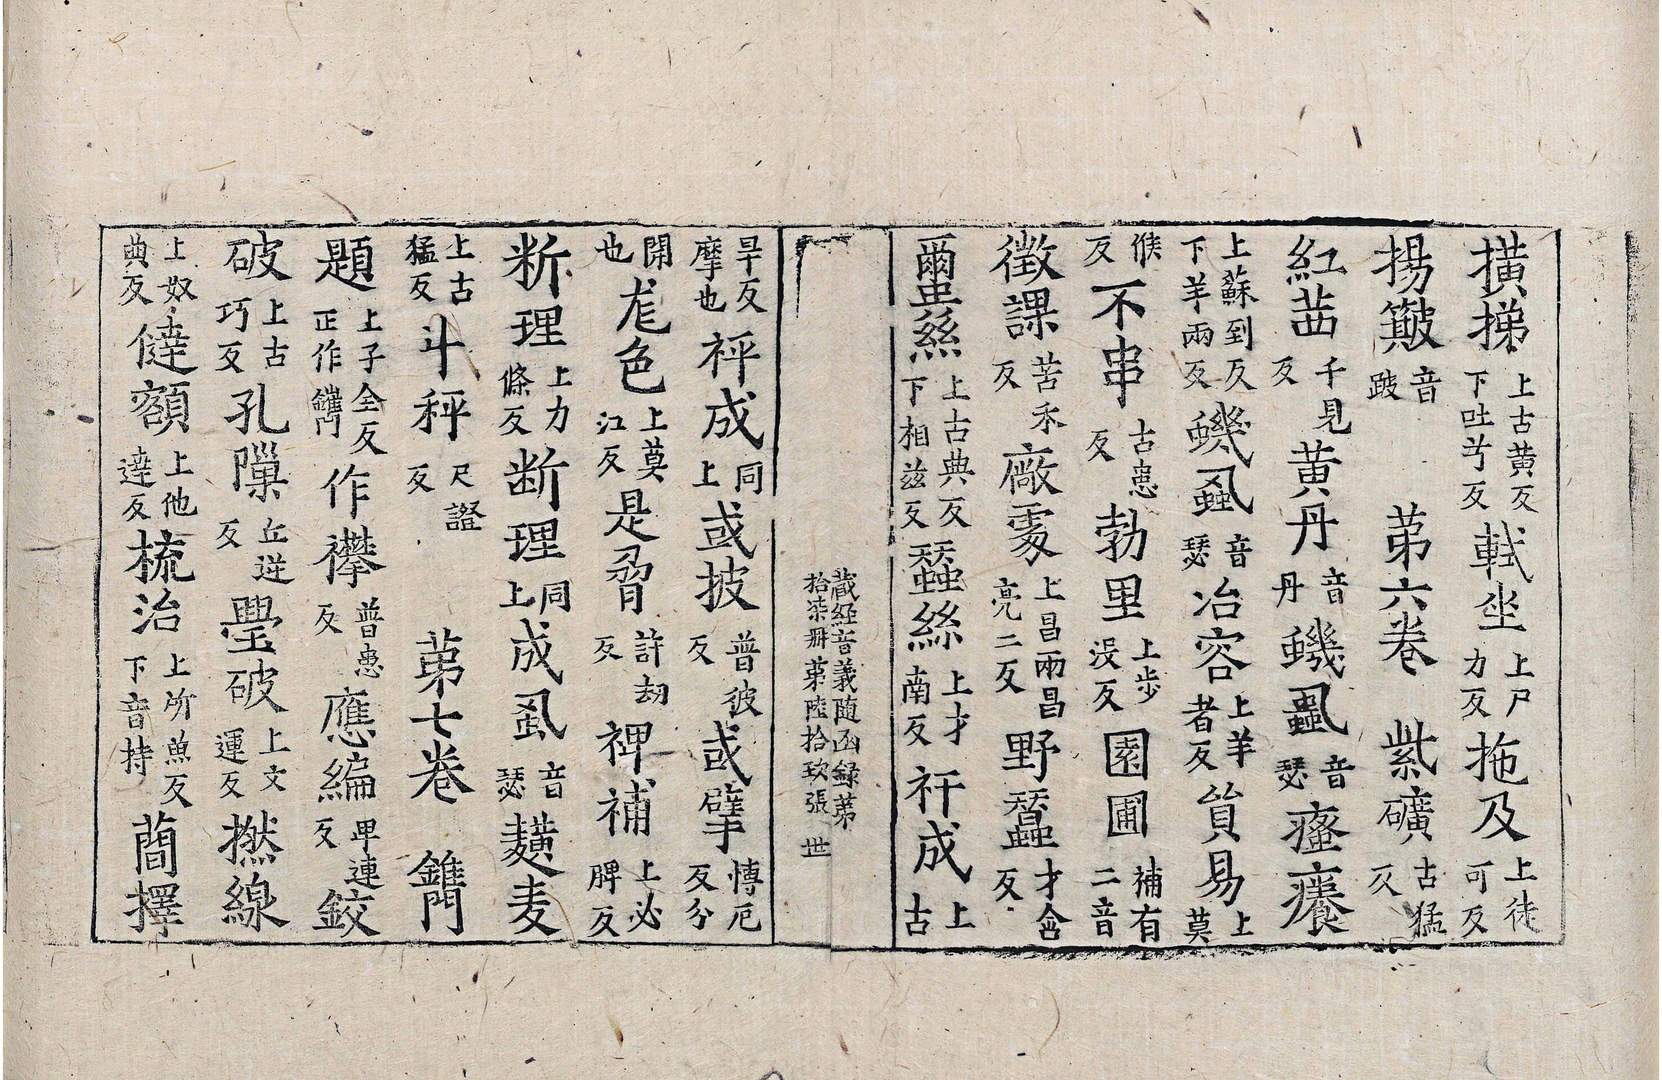 橫挮上古黃反下吐兮反軾坐上尸力反拖及上徒可反
揚簸音跛 苐六卷 紫礦古猛反
紅茜千見反黃丹音丹蟣虱音瑟瘞癢
上蘇到反下羊兩反蟣虱音瑟冶容上羊者反貿易上莫
候反不串古患反勃里上步没反園圃補有二音
徵課苦禾反廠䨥上昌兩昌亮二反野蠶才含反
蠒絲上古典反下相兹反蠶絲上才南反衦成上古
藏經音義随函録苐
拾柒冊苐陸拾玖張 世
旱反摩也秤成同上或披普彼反或擘博厄反分
開也尨色上莫江反是脅許刼反裨補上必脾反
断理上力條反断理同上成虱音瑟䴷麦
上古猛反斗秤尺證反 苐七卷 鐫
題上子全反正作鐫作襻普患反應編卑連反鉸
破上古巧反孔隟丘逆反舋破上文運反撚線
上奴典反㒓額上他達反梳治上所魚反下音持蕳擇